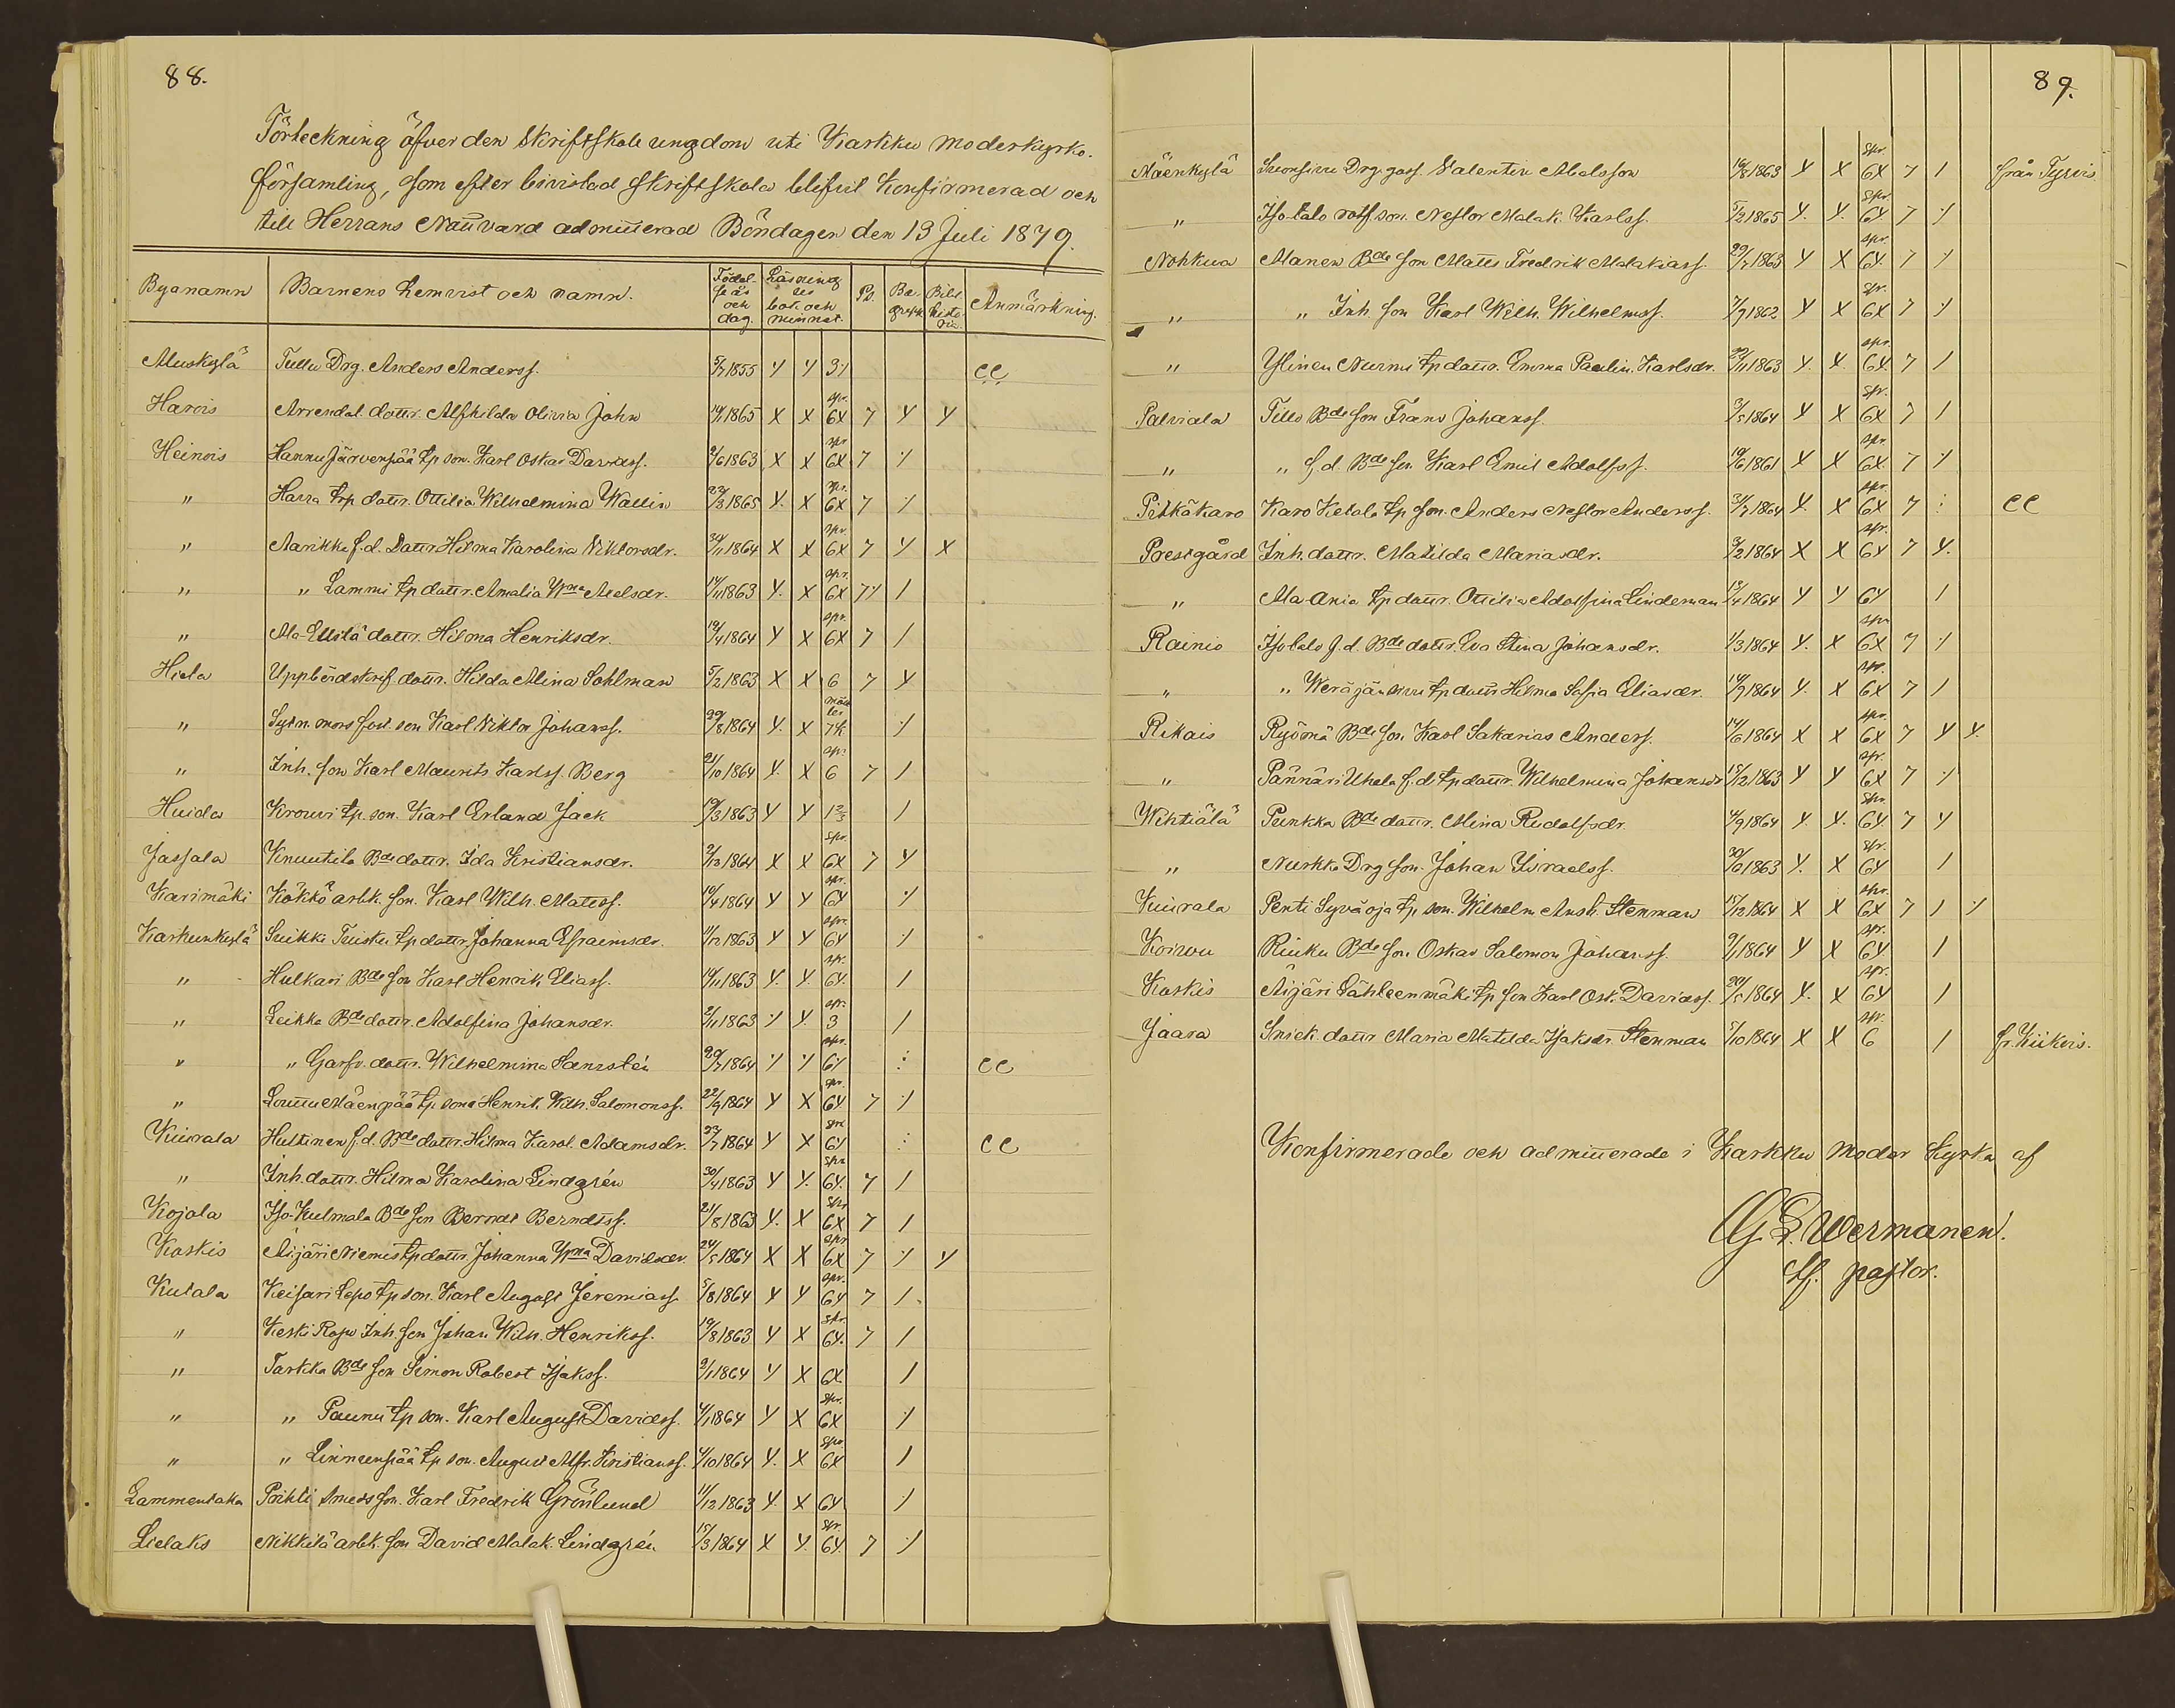 88.
Förteckning öfver den Skriftskole ungdom uti Karkku moderkyrko-
församling, som efter bivistad skriftskola blifvit Konfirmerad och
till Herrans Nattvard admitterad Böndagen den 13 Juli 1879.
Byanamn Barnens hemvist och namn. Födelse år och dag. Läsning ur bok och minnet. Ps. Begrepp Bibl. histo ria. Anmärkning.
Aluskylä Tullu Drg. Anders Anderss. 1855 Y Y 3 CC
Harois Arrendat. dottr. Alfhilda Olivia John 1865 X X spr. 6X 7 Y Y
Heinois Hannu Järvenpää tp son. Karl Oskar Davidss. 2/6 1863 X X spr 6X 7 /
" Harra trp dottr. Ottilia Wilhelmina Wallin 22/3 1865 Y. X spr. 6X 7 /
" Aarikka f.d. Dottr Hilma Karolina Viktorsdr. 1864 X X spr 6X 7 Y X
" " Lammi tp dottr. Amalia Wma Axelsdr. 14/11 1863 Y. X spr. 6X 7 /
" Ala-Ellilä dottr. Hilma Henriksdr. 1864 Y X spr. 6X 7 /
Hiela Uppbördskrif. dottr. Hilda Alina Sohlman 5/2 1863 X X 6 7 Y
" Sytn. mors fost. son Karl Viktor Johanss. 29/8 1864 Y. X 7 /
" Inh. son Karl Maurits Karlss. Berg 21/10 1864 Y. X spr. 6 7 /
Huida Krouvi tp. son. Karl Erland Jack 19/3 1863 Y Y /
Jassala Knuutila Bde dottr. Ida Kristiansdr. 2/12 1864 X X spr. 6X 7 Y
Karimäki Käkkö arbk. son. Karl Wilh. Matss. 10/4 1864 Y Y spr. 6Y /
Karkunkylä Suikki Tuisku tp dottr. Johanna Efraimsdr. 11/12 1863 Y Y spr. 6Y /
" Hulkari Bde son Karl Henrik Eliass. 14/11 1863 Y. Y. spr. 6Y. /
" Leikka Bde dottr. Adolfina Johansdr. 2/11 1863 Y Y. spr. 3 /
" " Garfv. dottr. Wilhelmina Sanistén 29/7 1864 Y Y spr. 6Y : CC
" Lounu Mäenpää tp. sona Henrik Wilh. Salomonss. 22/9 1864 Y X spr. 6Y 7 /
Kiurala Huttinen f.d. Bde dottr. Hilma Karol. Adamsdr. 23/7 1864 Y X spr 6Y : CC
" Inh. dottr. Hilma Karolina Lindgrén 30/4 1863 Y Y. spr 6Y. 7 /
Kojola Iso-Kulmala Bde son Berndt Berndtss. 21/8 1863 Y. X spr 6X 7 /
Koskis Äijäri Niemis tp dottr. Johanna Wma Davidsdr. 24/5 1864 X X spr 6X 7 / Y
Kutala Keisari Lepo tp son. Karl August Jeremiass. 5/8 1864 Y Y spr. 6Y 7 /
" Keski Rapo Inh. son Johan Wilh. Henrikss. 19/8 1863 Y X spr. 6Y. 7 /
" Tarkka Bde son Simon Robert Isakss. 9/1 1864 Y X 6X /
" " Paunu tp son. Karl August Davidss. 4/1 1864 Y X spr. 6X /
" " Linnunpää tp son. August Alfr. Kristianss. 4/10 1864 Y. X spr 6X /
Lammentaka Poikti smeds son. Karl Fredrik Grönlund 11/12 1863 Y. X 6Y /
Lielaks Nikkilä arbk. son David Malak. Lindgrén 15/3 1864 X Y. spr. 6Y. 7 /
89.
Mäenkylä Drg. goss. Valentin Abelsson 16/8 1863 Y X spr. 6X 7 / från Tyrvis
" Iso-talo son. Nestor Malak. Karlss. 5/2 1865 Y. Y. spr. 6Y 7 /
Nohkua Manen Bde son Matts Fredrik Malakiass. 29/7 1863 Y X spr. 6Y. 7 /
" " Inh. son Karl Wilh. Wilhelmss. 7/9 1862 Y X spr. 6X 7 /
" Ylinen Nurmi tp dottr. Emma Paulin. Karlsdr. 29/11 1863 Y. X. spr. 6Y. 7 /
Palviala Tills Bde son Frans Johanss. 3/5 1864 Y X spr. 6X 7 /
" " f.d. Bde son Karl Emil Adolfss. 19/6 1861 Y X spr 6X. 7 /
Pitkäkaro Karo Ketola tp son. Anders Nestor Anderss. 31/7 1864 Y. X spr. 6X 7 : CC
Prestgård Inh. dottr. Matilda Mariasdr. 9/2 1864 X X spr. 6Y 7 Y.
" Ala-Ania tp dottr. Ottilia Adolfina Lindeman 13/4 1864 Y Y 6Y /
Rainio Isotalo f.d. Bde dottr. Eva Stina Johansdr. 1/3 1864 Y. X spr 6X 7 /
" " tp dottr Hilma Sofia Eliasdr. 14/9 1864 Y. X spr. 6X 7 /
Rikais Ryömä Bde son Karl Sakarias Anderss. 14/6 1864 X X spr. 6X 7 Y Y.
" Pännäri Uhela f.d. tp dottr. Wilhelmina Johansdr 15/12 1863 Y Y spr. 6X 7 /
Wihtiälä Punkka Bde dottr. Alina Rudolfsdr. 4/9 1864 Y. Y. spr. 6Y 7 Y
" Nurkka Drg son. Johan Israelss. 30/6 1863 Y. X spr. 6Y /
Kiurala Penti Syväoja tp. son. Wilhelm Ansh. Stenman 15/12 1864 X X spr. 6X 7 / /
Koivou Rinku Bde son Oskar Salomon Johanss. 9/1 1864 Y X spr. 6Y /
Koskis Äijäri Lähteenmäki tp son Karl Osk. Davidss. 20/5 1864 Y. X spr. 6Y /
Jaara Snick. dottr Maria Matilda Isaksdr. Stenman 7/10 1864 X X spr. 6 / fr. Kiikois.
Konfirmerade och admitterade i Karkku moder Kyrka af
G. L. Wermanen.
tf. pastor.